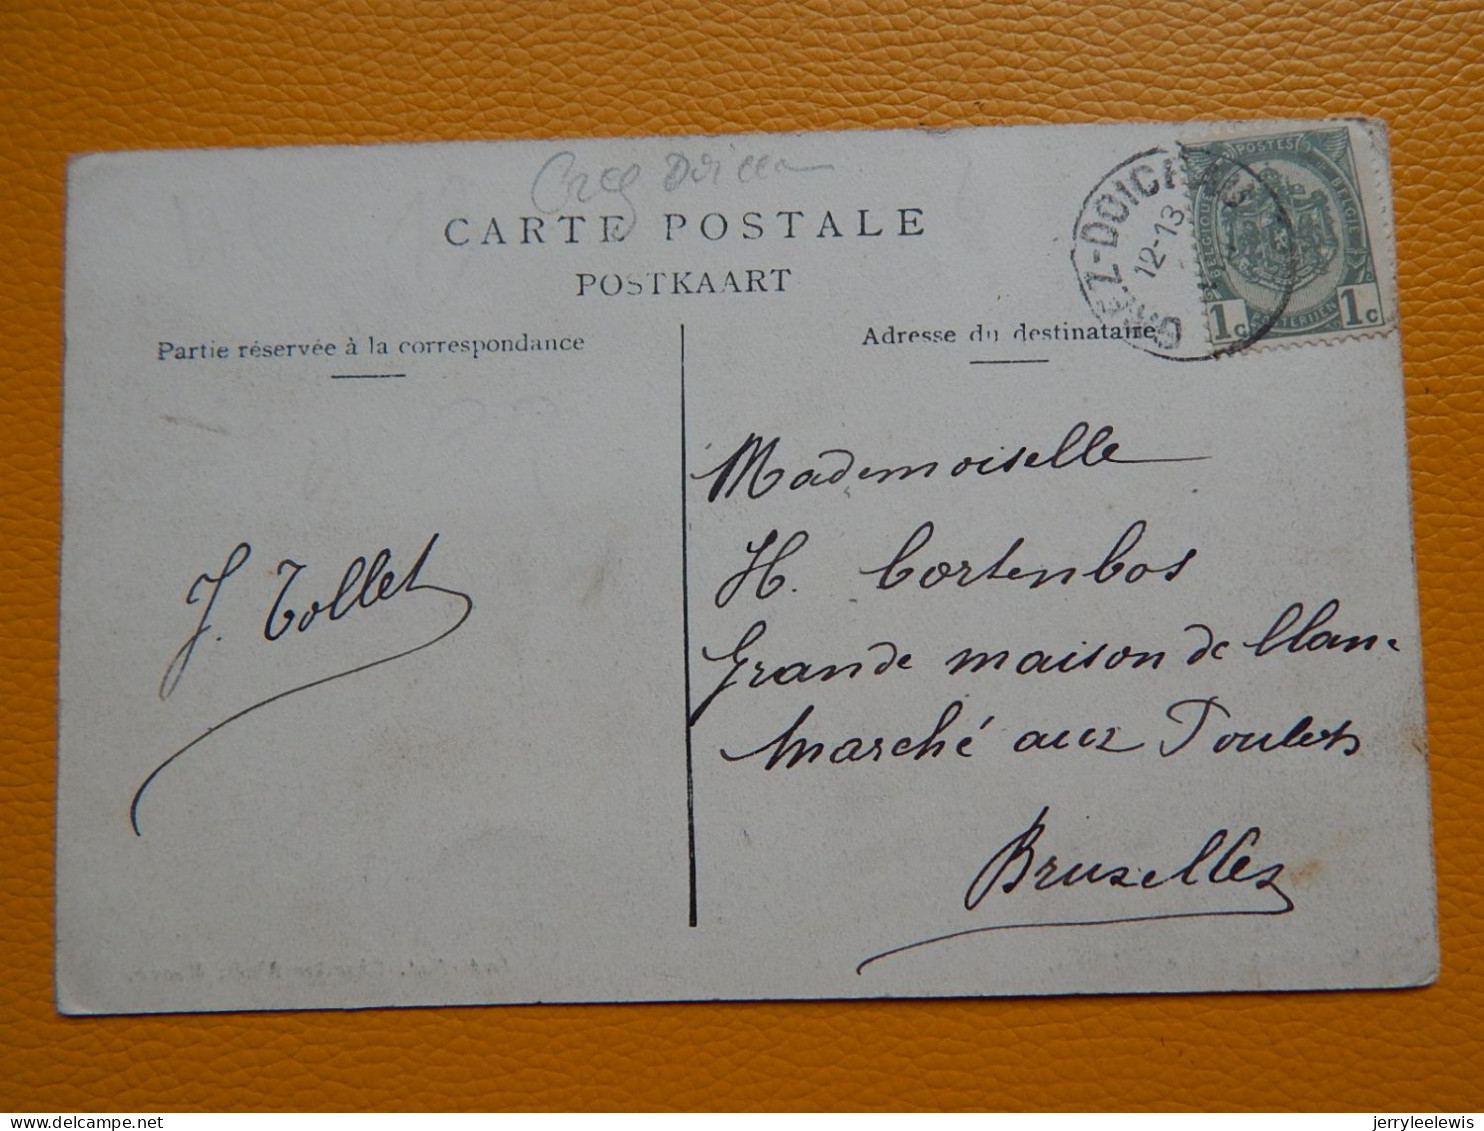 CARTE POSTALE
POSTKAART
Partie réservée à la correspondance
Adresse du destinataire
GREZ-DOICEAU
12-13
POSTES
BELGIQUE
BELGIE
POSTERIJEN
1c 1c
J. Tollet
Mademoiselle
H. Cortenbos
Grande maison de Blanc
Marché aux Poulets
Bruxelles
jerryleelewis